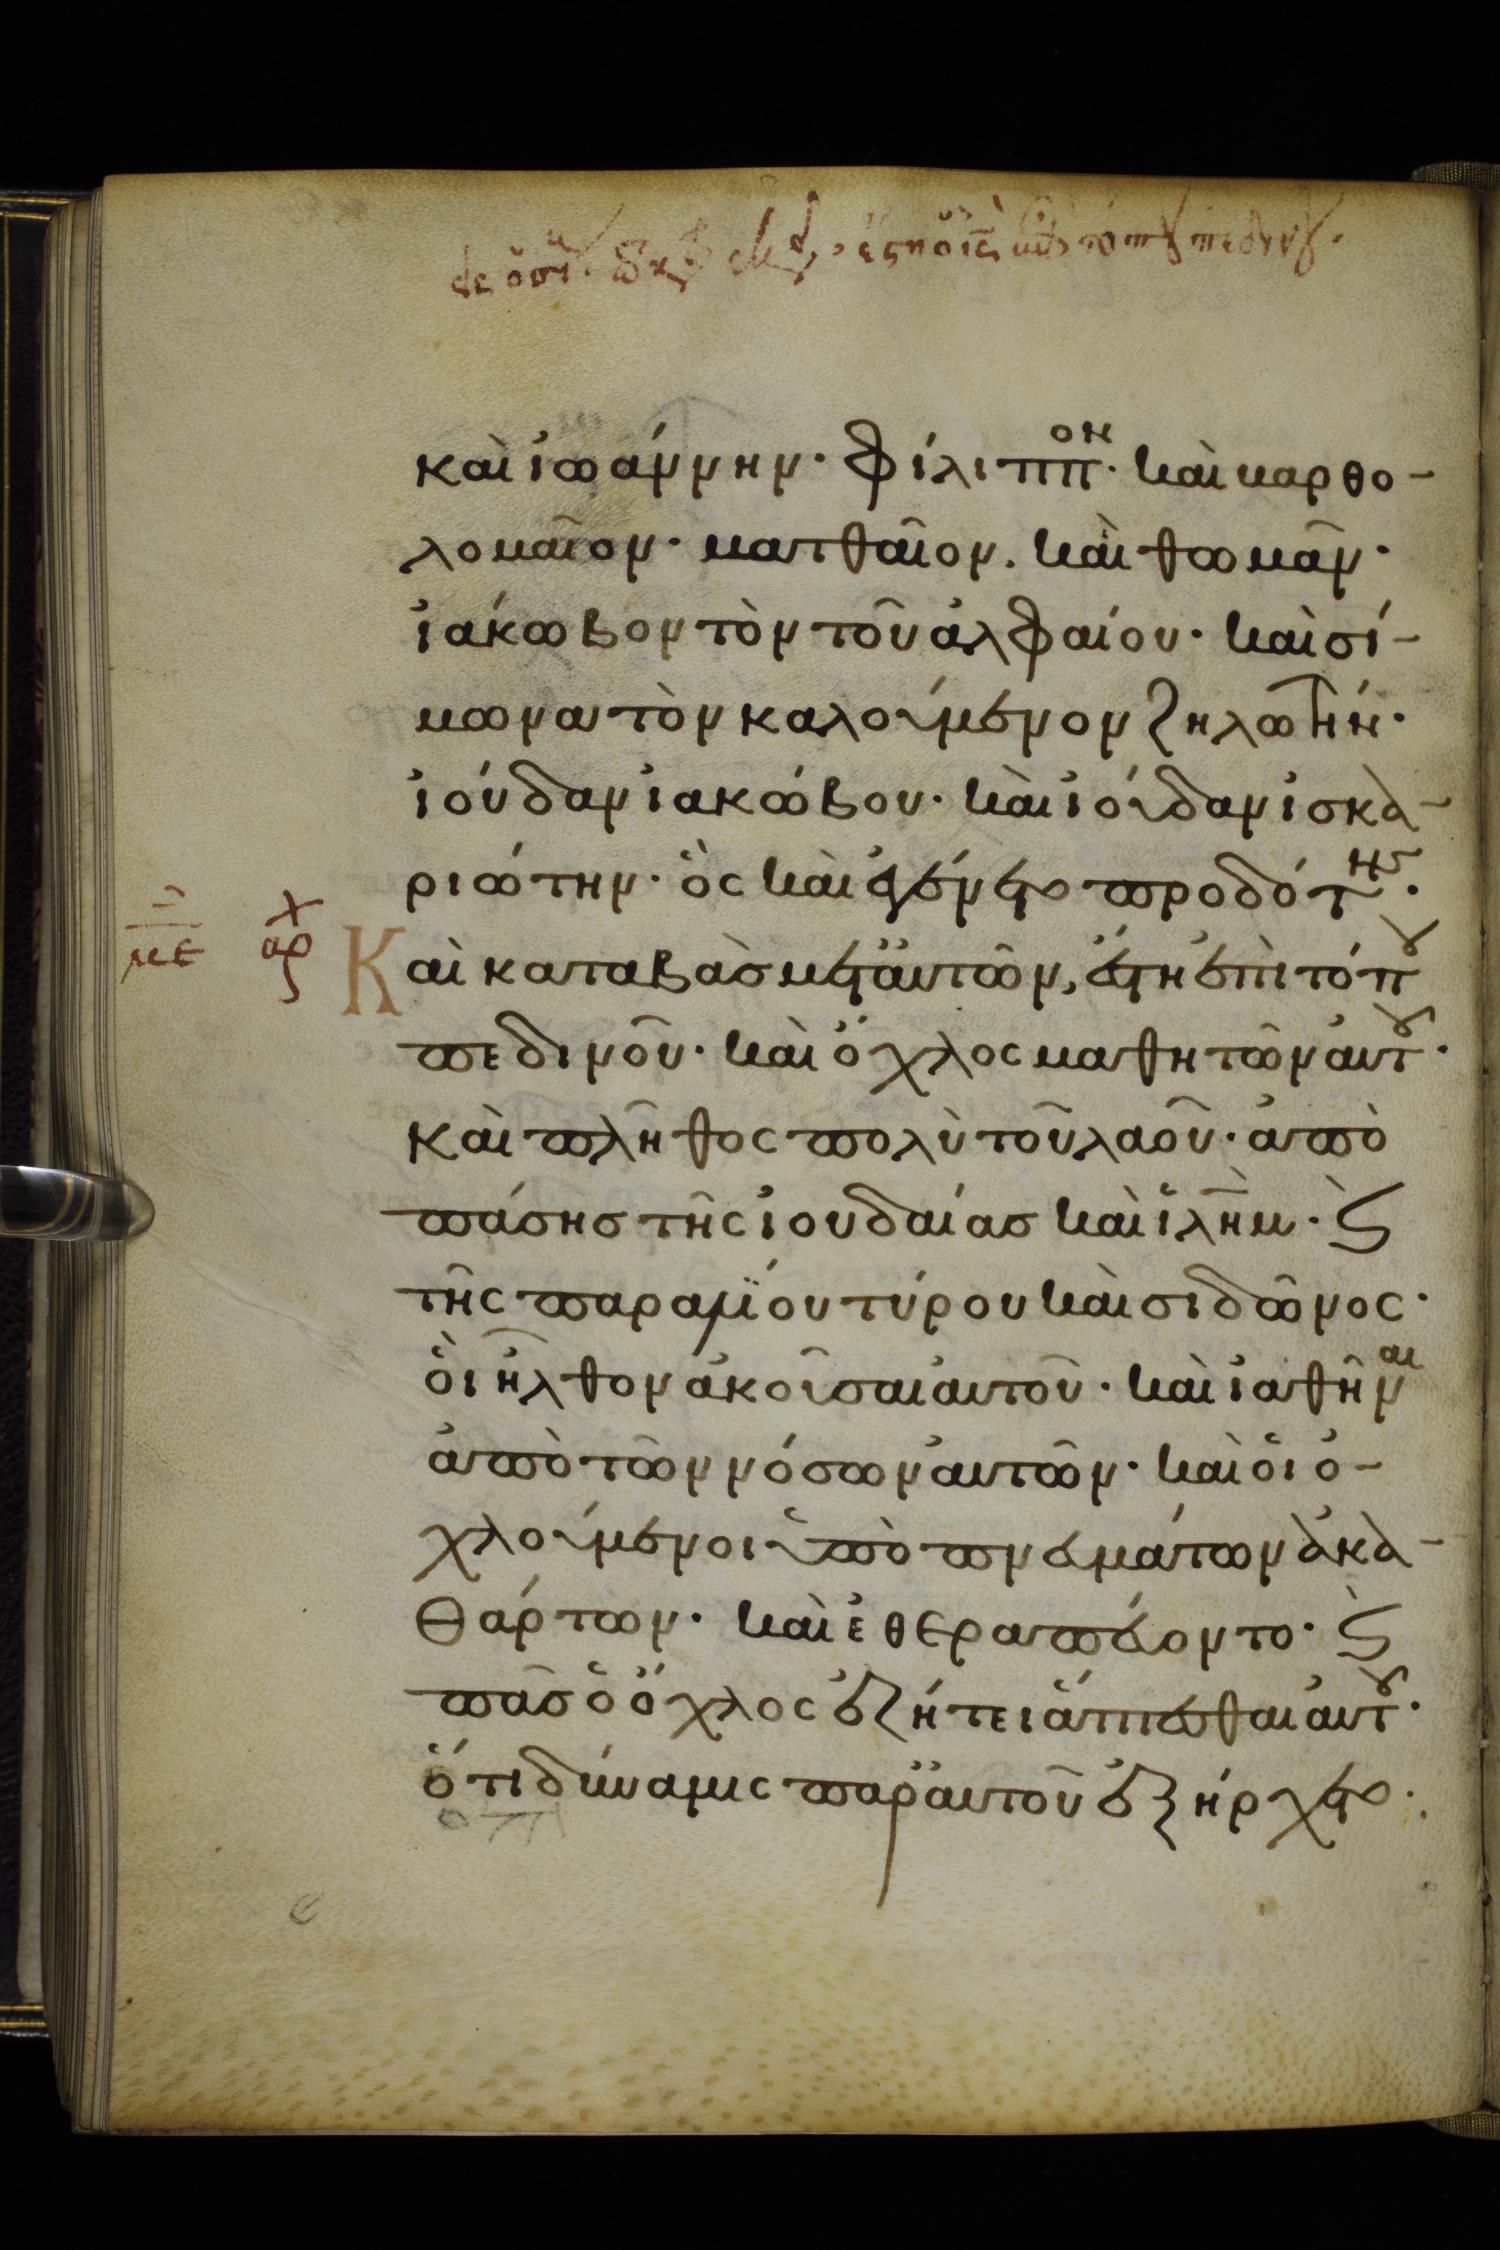 καὶ ἰωάννην· φίλιππον· καὶ βαρθο-
λομαῖον· ματθαῖον. καὶ θωμᾶν·
ἰάκωβον τὸν τοῦ ἀλφαίου· καὶ σί-
μωνα τὸν καλούμενον ζηλωτήν·
ἰούδαν ἰακώβου· καὶ ἰούδαν ἰσκα-
ριώτην· ὃς καὶ ἐγένετο προδότης·
με αρχ Καὶ καταβὰς μετ' αὐτῶν, ἔστη ἐπὶ τόπου
πεδινοῦ· καὶ ὄχλος μαθητῶν αὐτοῦ·
καὶ πλῆθος πολὺ τοῦ λαοῦ· ἀπὸ
πάσης τῆς ἰουδαίας καὶ ἱλὴμ· ϗ
τῆς παραλίου τύρου καὶ σιδῶνος·
οἳ ἦλθον ἀκοῦσαι αὐτοῦ· καὶ ἰαθῆναι
ἀπὸ τῶν νόσων αὐτῶν· καὶ οἱ ὀ-
χλούμενοι ὑπὸ πνευμάτων ἀκα-
θάρτων· καὶ ἐθεραπεύοντο· ϗ
πᾶς ὁ ὄχλος ἐζήτει ἅπτεσθαι αὐτοῦ·
ὅτι δύναμις παρ' αὐτοῦ ἐξήρχετο·